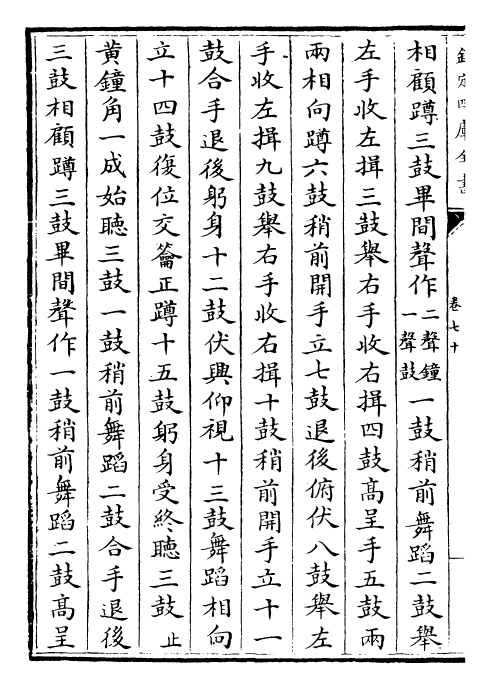 欽定四庫全書
卷七十
相顧蹲三鼓畢間聲作二聲鐘一聲鼓一鼓稍前舞蹈二鼓舉
左手收左揖三鼓舉右手收右揖四鼓髙呈手五鼓兩
兩相向蹲六鼓稍前開手立七鼓退後俯伏八鼓舉左
手收左揖九鼓舉右手收右揖十鼓稍前開手立十一
鼓合手退後躬身十二鼓伏興仰視十三鼓舞蹈相向
立十四鼓復位交籥正蹲十五鼓躬身受終聽三鼓止
黄鐘角一成始聽三鼓一鼓稍前舞蹈二鼓合手退後
三鼓相顧蹲三鼓畢間聲作一鼓稍前舞蹈二鼓髙呈